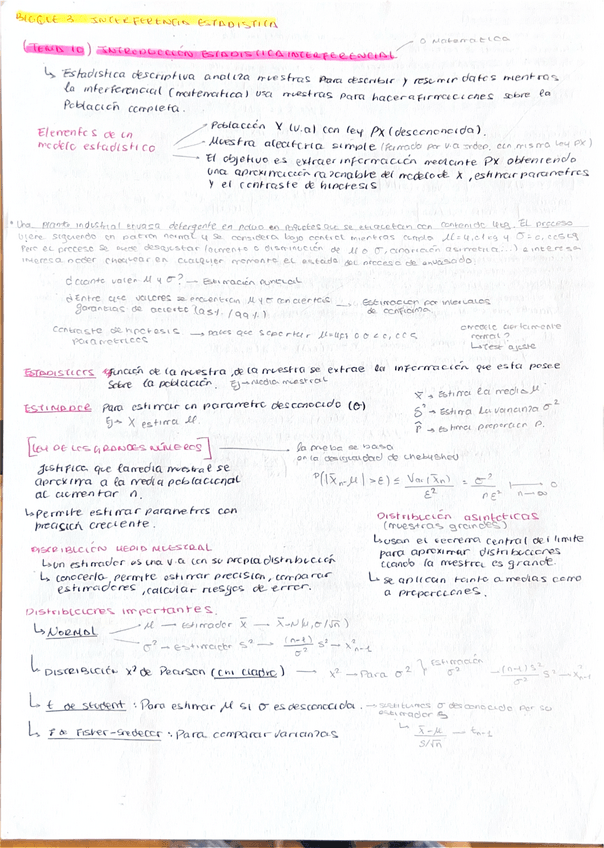 BLOQUE 3 INTERFERENCIA ESTADISTICA
(TEMA 10) INTRODUCCIÓN ESTADISTICA INTERFERENCIAL → o Matematica
↳ Estadistica descriptiva analiza muestras para describir y resumir datos mientras
la interferencial (matematica) usa muestras para hacer afirmaciones sobre la
Población completa.
Elementos de un
modelo estadístico
Población X (v.a) con ley PX (desconocida).
Muestra aleatoria simple (formado por v.a indep. con misma ley PX)
El objetivo es extraer información mediante PX obteniendo
una aproximación razonable del modelo de X, estimar parametros
y el contraste de hipotesis
* Una planta industrial envasa detergente en polvo en paquetes que se etiquetan con contenido 4kg. El proceso
viene siguiendo un patron normal y se considera bajo control mientras cumpla
Pero el proceso se puede desajustar (aumento o disminución de μ o σ, aparición asimetria...) e interesa
interesa poder chequear en cualquier momento el estado del proceso de envasado.
¿Cuanto valen μ y σ? → Estimación puntual
¿Entre que valores se encuentran μ y σ con ciertas
garantias de acierto (95% / 99%) → Estimacion por intervalos
de confianza.
Contraste de hipotesis
parametricos
→ Test ajuste
ESTADISTICOS función de la muestra, de la muestra se extrae la información que esta posee
sobre la población. Ej → Media muestral
ESTIMADOR Para estimar un parametro desconocido (θ)
Ej → X estima μ.
x̄ → Estima la media μ
S² → Estima la varianza σ²
p̂ → Estima proporcion p.
[LEY DE LOS GRANDES NÚMEROS] → la prueba se basa
en la desigualdad de chebyshov
Justifica que la media muestral se
aproxima a la media poblacional
al aumentar n.
↳ Permite estimar parametros con
precisión creciente.
P(|X̄n-μ| > ε) ≤ Var(X̄n)/ε² = σ²/nε² → 0
n → ∞
Distribución asintóticas
(muestras grandes)
↳ usan el teorema central del limite
para aproximar distribuciones
cuando la muestra es grande.
↳ se aplican tanto a medias como
a proporciones.
DISTRIBUCIÓN MEDIA MUESTRAL
↳ un estimador es una v.a con su propia distribución
↳ conocerla permite estimar precisión, comparar
estimadores, calcular riesgos de error.
Distribuciones importantes.
↳ NORMAL
μ → Estimador X̄ → X̄~N(μ, σ/√n)
σ² → Estimador S² → (n-1)/σ² S² → X²n-1
↳ DISTRIBUCIÓN X² de Pearson (chi cuadro) → X² → Para σ² } Estimación σ² → (n-1)S²/σ² S² → X²n-1
↳ t de student : Para estimar μ si σ es desconocida. → sustituimos σ desconocido por su
estimador S
↳ X̄-μ / S/√n → tn-1
↳ F de Fisher-Snedecor : Para comparar varianzas